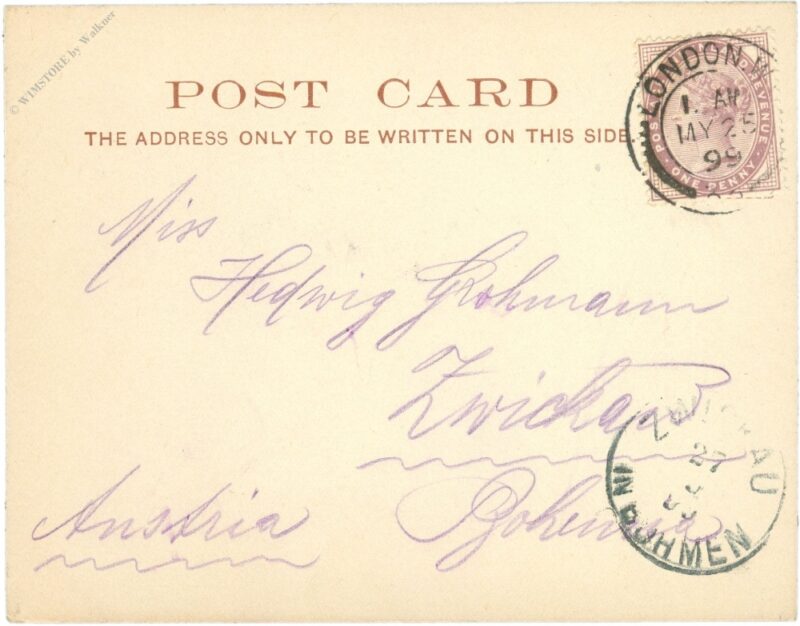 © W1MSTORE by Walkner
POST CARD
THE ADDRESS ONLY TO BE WRITTEN ON THIS SIDE.
LONDON
1. AM
MY 25
99
POSTAGE AND REVENUE
ONE PENNY
Miss
Hedwig Grohmann
Zwickau
Austria Bohemia
ZWICKAU
27
IN BÖHMEN